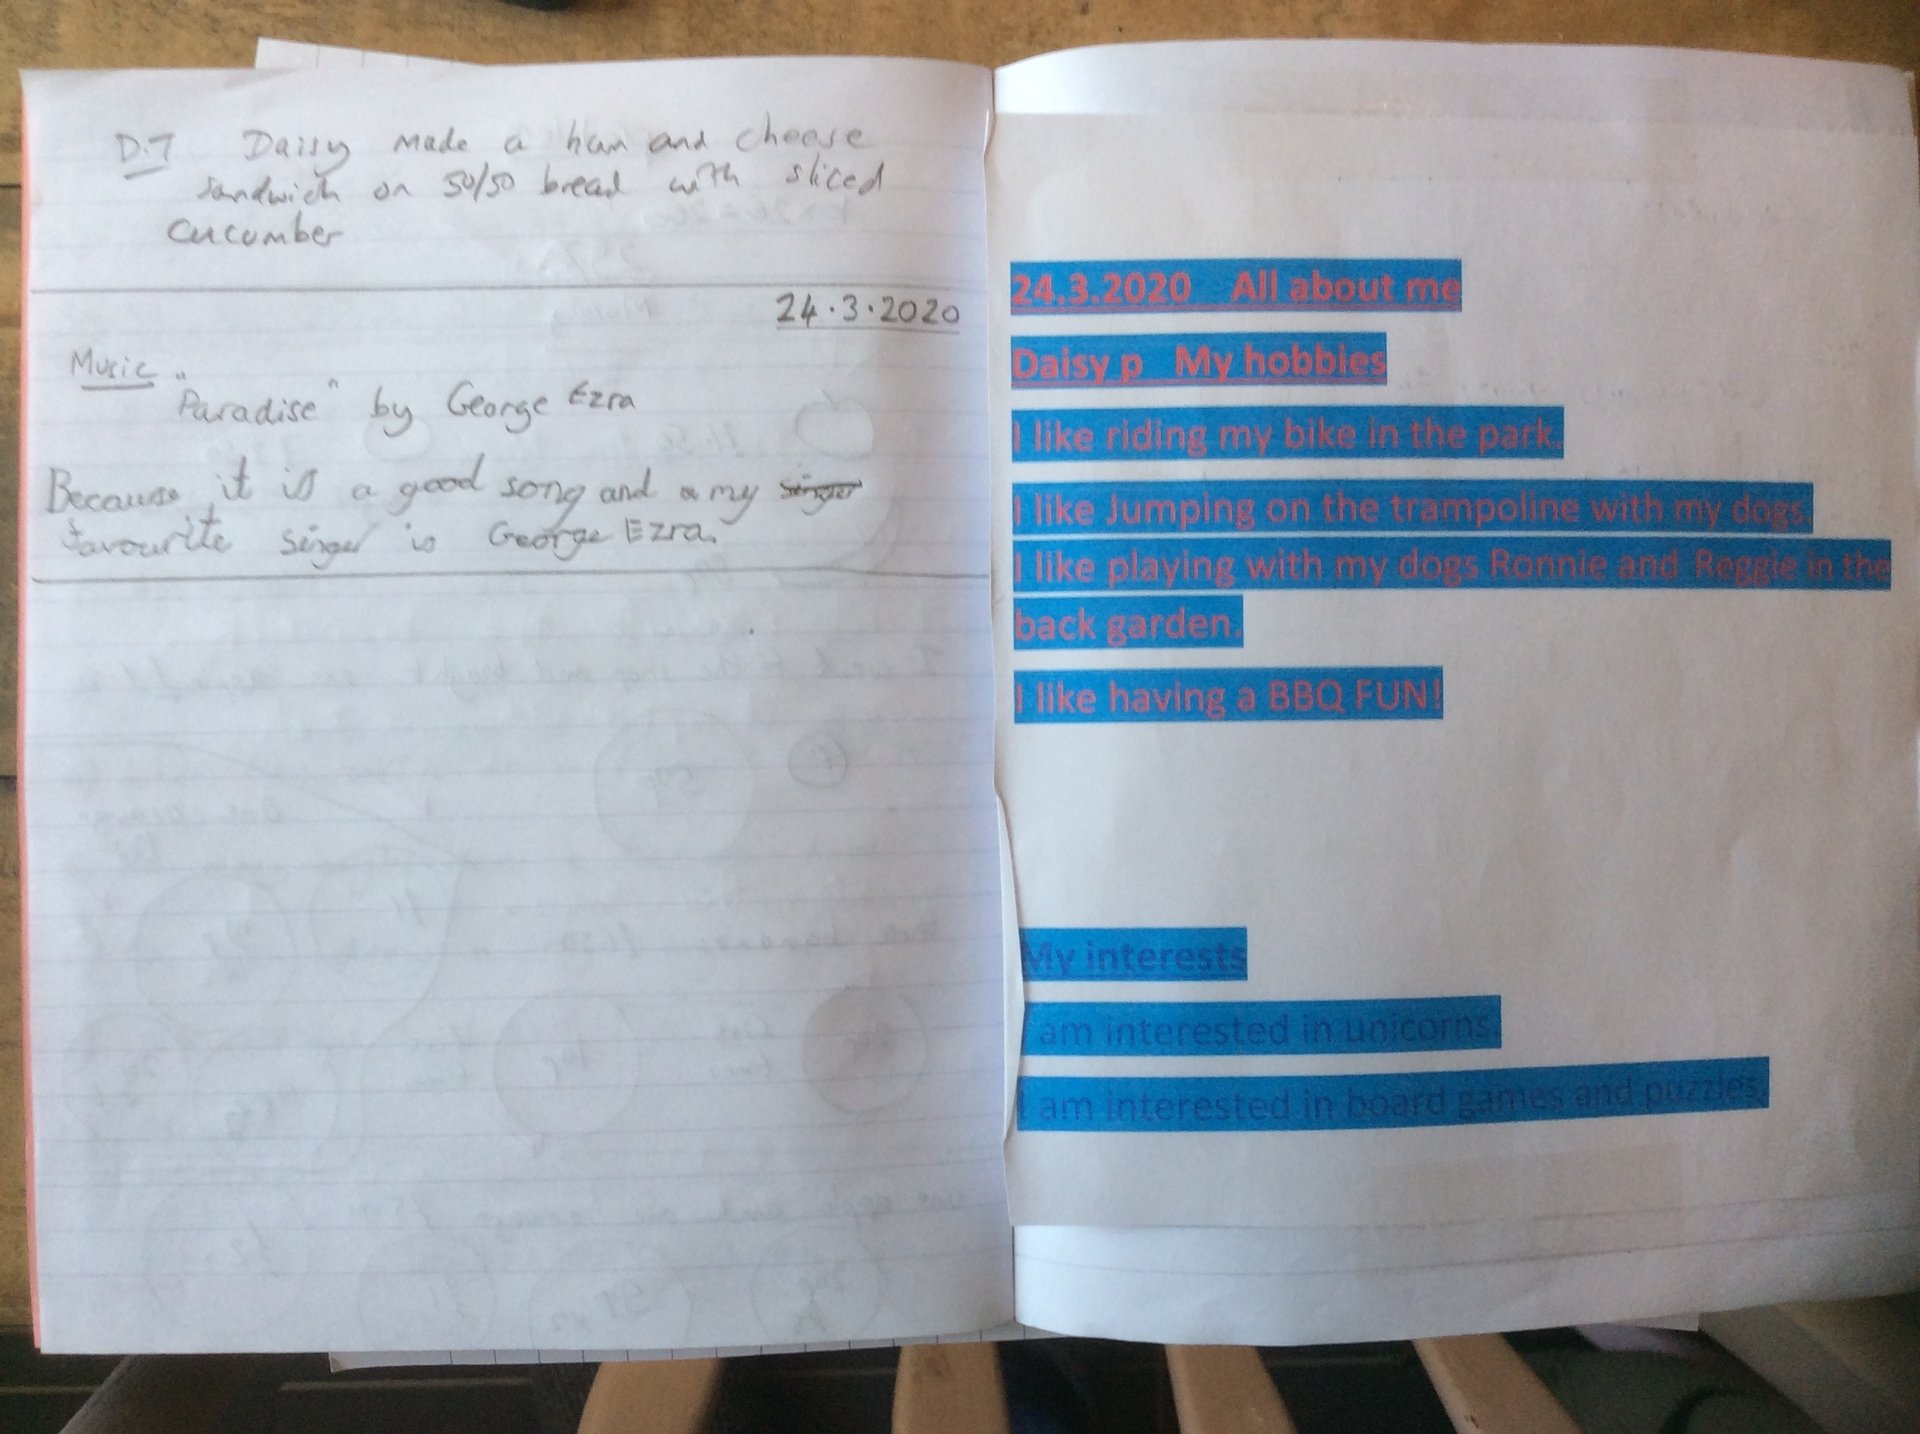 D.T Daisy made a ham and cheese
sandwich on 50/50 bread with sliced
cucumber
24.3.2020
Music
"Paradise" by George Ezra
Because it is a good song and a my singer
favourite singer is George Ezra.
24.3.2020 All about me
Daisy p My hobbies
I like riding my bike in the park.
I like Jumping on the trampoline with my dogs.
I like playing with my dogs Ronnie and Reggie in the
back garden.
I like having a BBQ FUN!
My interests
I am interested in unicorns.
I am interested in board games and puzzles.